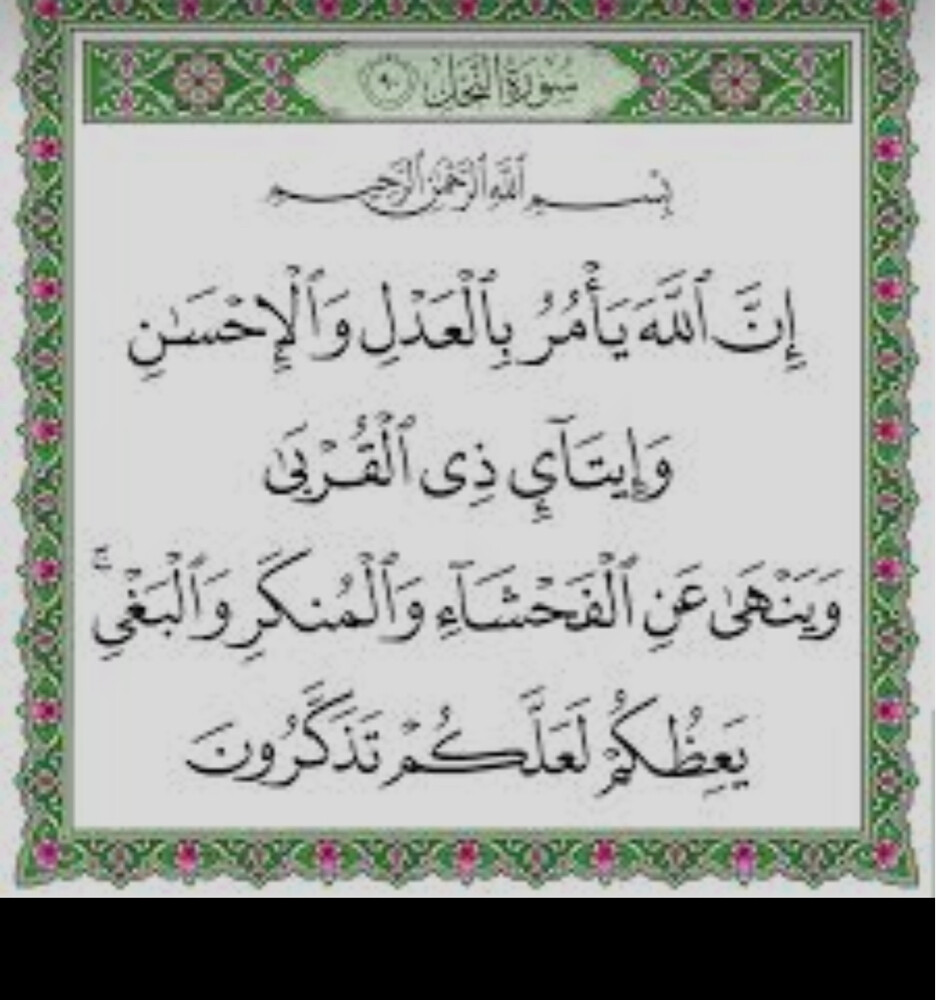 سُورَةُ النَّحْلِ ٩٠
بِسْمِ ٱللَّهِ ٱلرَّحْمَٰنِ ٱلرَّحِيمِ
إِنَّ ٱللَّهَ يَأْمُرُ بِٱلْعَدْلِ وَٱلْإِحْسَٰنِ
وَإِيتَآئِ ذِى ٱلْقُرْبَىٰ
وَيَنْهَىٰ عَنِ ٱلْفَحْشَآءِ وَٱلْمُنكَرِ وَٱلْبَغْىِ ۚ
يَعِظُكُمْ لَعَلَّكُمْ تَذَكَّرُونَ